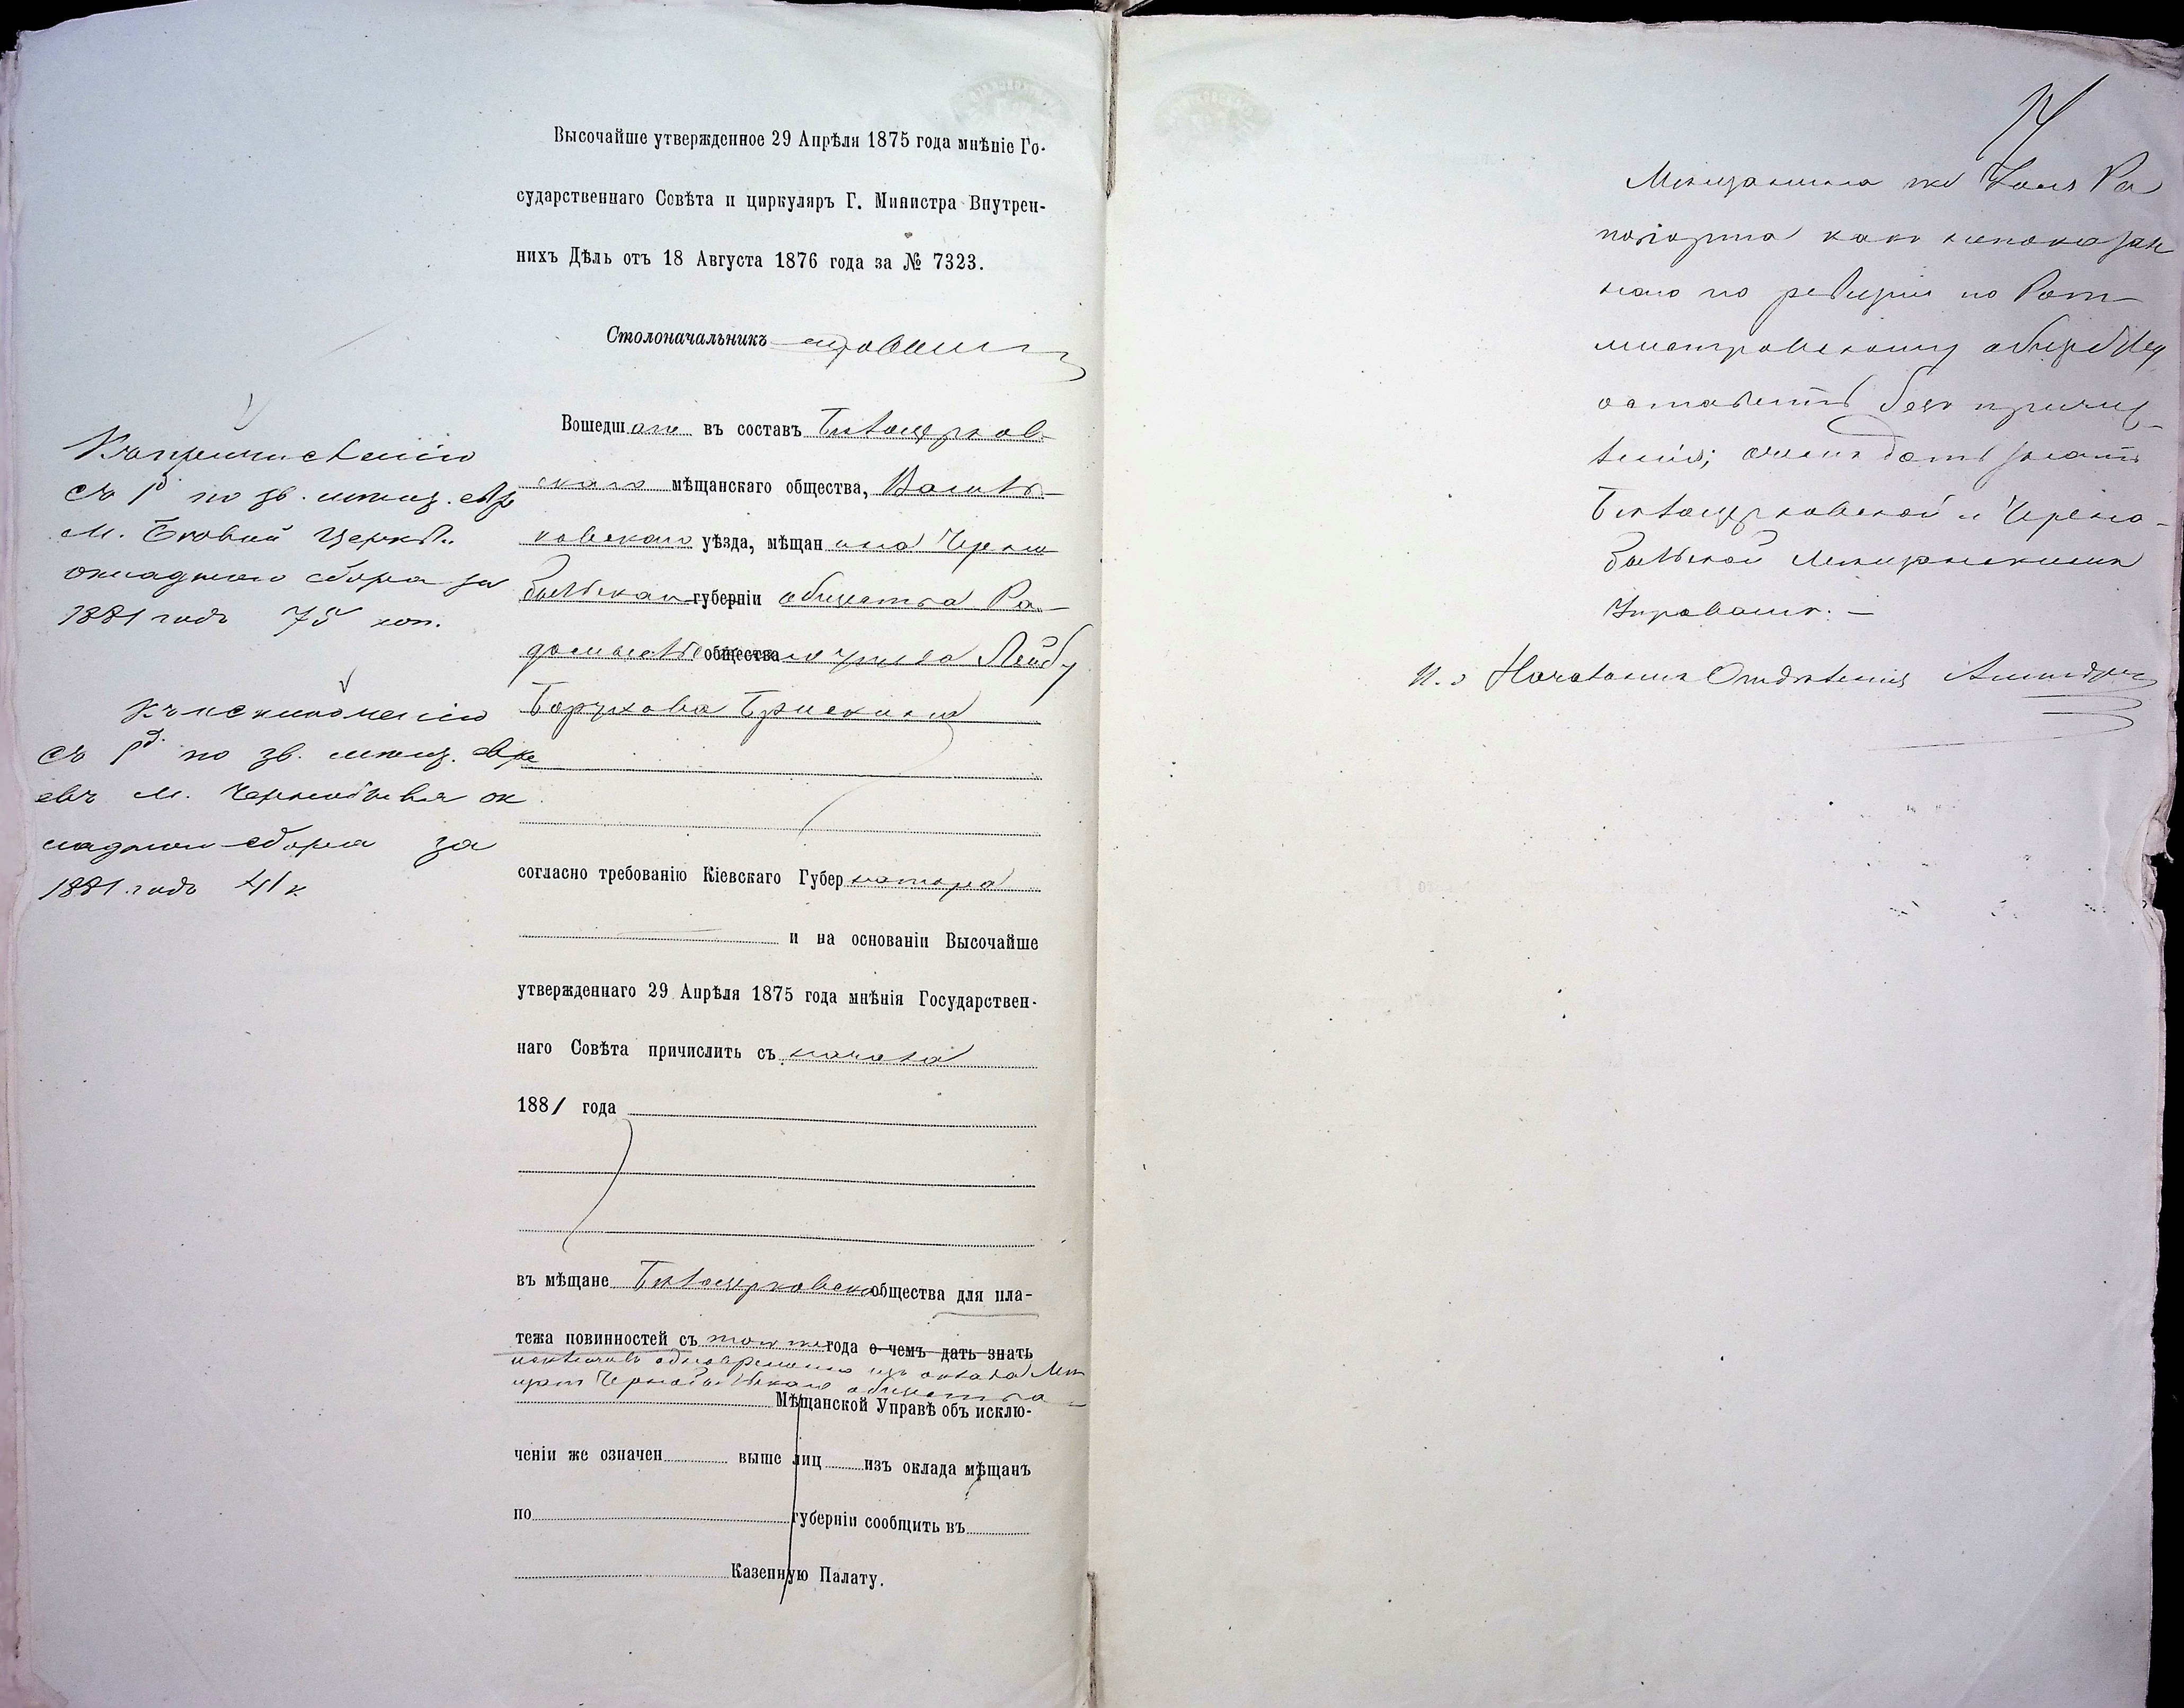 Высочайше утвержденное 29 Апрѣля 1875 года мнѣніе Го-
сударственнаго Совѣта и циркуляръ Г. Министра Внутрен-
нихъ Дѣлъ отъ 18 Августа 1876 года за № 7323.
Столоначальникъ
Вошедшаго въ составъ Бѣлоцерков-
скаго мѣщанскаго общества, Василь-
ковскаго уѣзда, мѣщанина Черно
быльскаго губерніи общества Ра-
домысльскаго общества уѣзда Лейбу
Борухова Брискина
согласно требованію Кіевскаго Губернатора
и на основаніи Высочайше
утвержденнаго 29 Апрѣля 1875 года мнѣнія Государствен-
наго Совѣта причислить съ начала
1881 года
въ мѣщане Бѣлоцерковск. общества для пла-
тежа повинностей съ того же года о чемъ дать знать
исключивъ одновременно изъ оклада Мѣ
щанъ Чернобыльскаго общества
Мѣщанской Управѣ объ исклю-
ченіи же означен выше лиц изъ оклада мѣщанъ
по губерніи сообщить въ
Казенную Палату.
Къ причисленію
съ 1 д. по зв. мѣщ. евр
м. Бѣлой Церкви
окладного сбора за
1881 годъ 75 коп.
Къ исключенію
съ 1 д. по зв. мѣщ. евре
евъ м. Чернобыля ок
ладного сбора за
1881 годъ 41 к
Мѣщанина же
какъ непоказан
наго по ревизіи по Рот-
мистровскому обществу
оставить безъ причис-
ленія; о чемъ дать знать
Бѣлоцерковской и Черно-
быльской Мѣщанскимъ
Управамъ. —
И. д. Начальника Отдѣленія